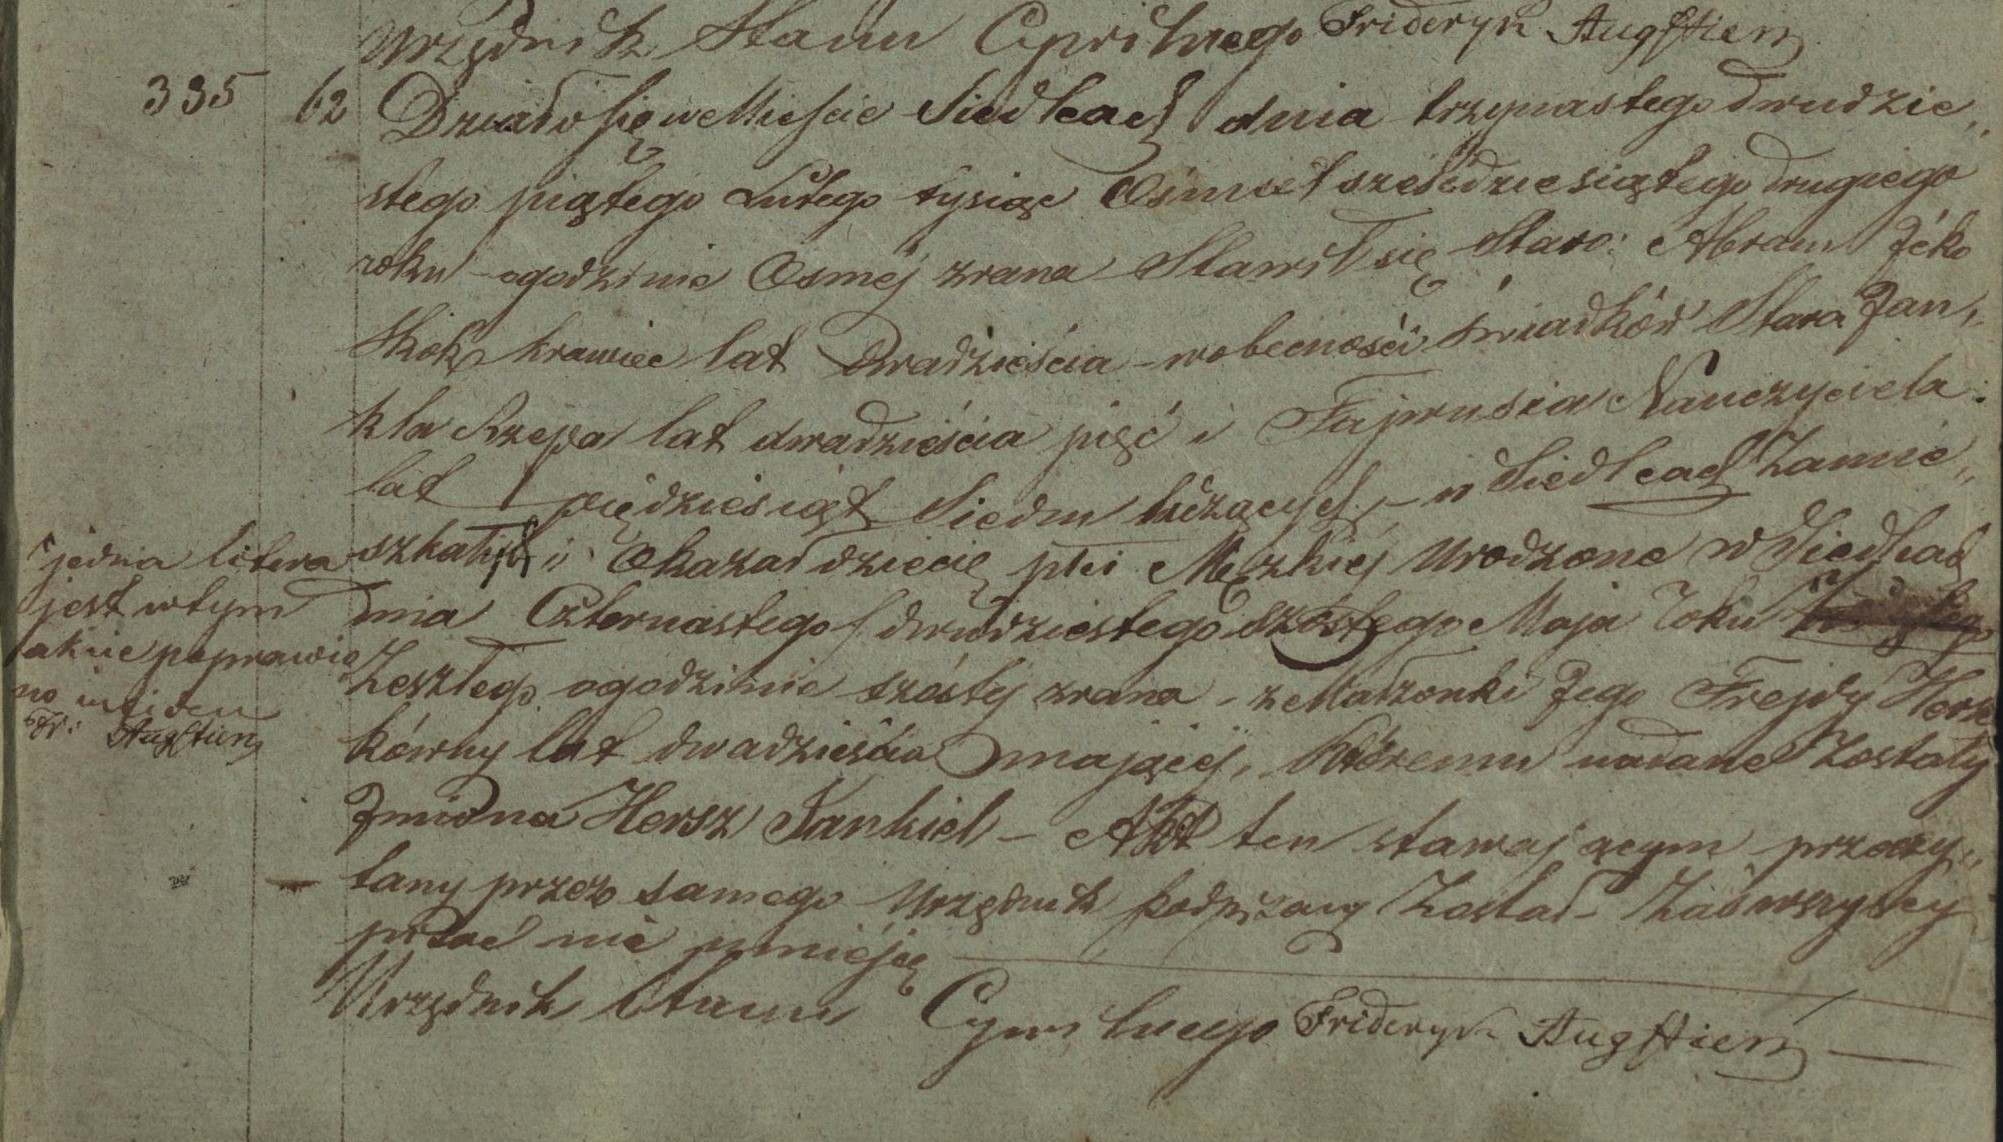 Urzędnik Stanu Cywilnego Frideryk Augsttien
335 62 Działo się w Mieście Siedlcach dnia trzynastego dwudzie„
stego piątego Lutego tysiąc Osmset sześćdziesiątego drugiego
roku o godzinie Osmej zrana Stawił się Staro: Abram Jćko
Skok krawiec lat Dwadzieścia – w obecności świadków Staro Jan„
kla Rzepa lat dwadzieścia pięć i Fajwusia Nauczyciela
lat pięćdziesiąt Siedm liczących, – w Siedlcach Zamie„
szkałych i Okazał dziecię płci Męzkiej Urodzone w Siedlcach
dnia Czternastego / dwudziestego szóstego Maja roku
Zeszłego o godzinie szóstej zrana – z Małżonki Jego Frejdy Hersz
kówny lat dwadzieścia mającej, któremu nadane Zostały
Imiona Hersz Jankiel – Akt ten stawającym przeczy„
tany przez samego Urzędnik podpisany Został – Zaś wszyscy
pisać nie umieją
Urzędnik Stanu Cywilnego Frideryk Augsttien
jedna litera
jest w tym
akcie poprawio
no
Fr: Augsttien